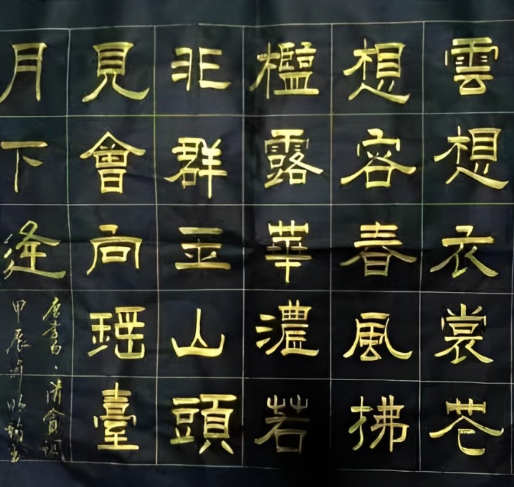 雲想衣裳花
想容春風拂
檻露華濃若
非群玉山頭
見會向瑶臺
月下逢
甲辰